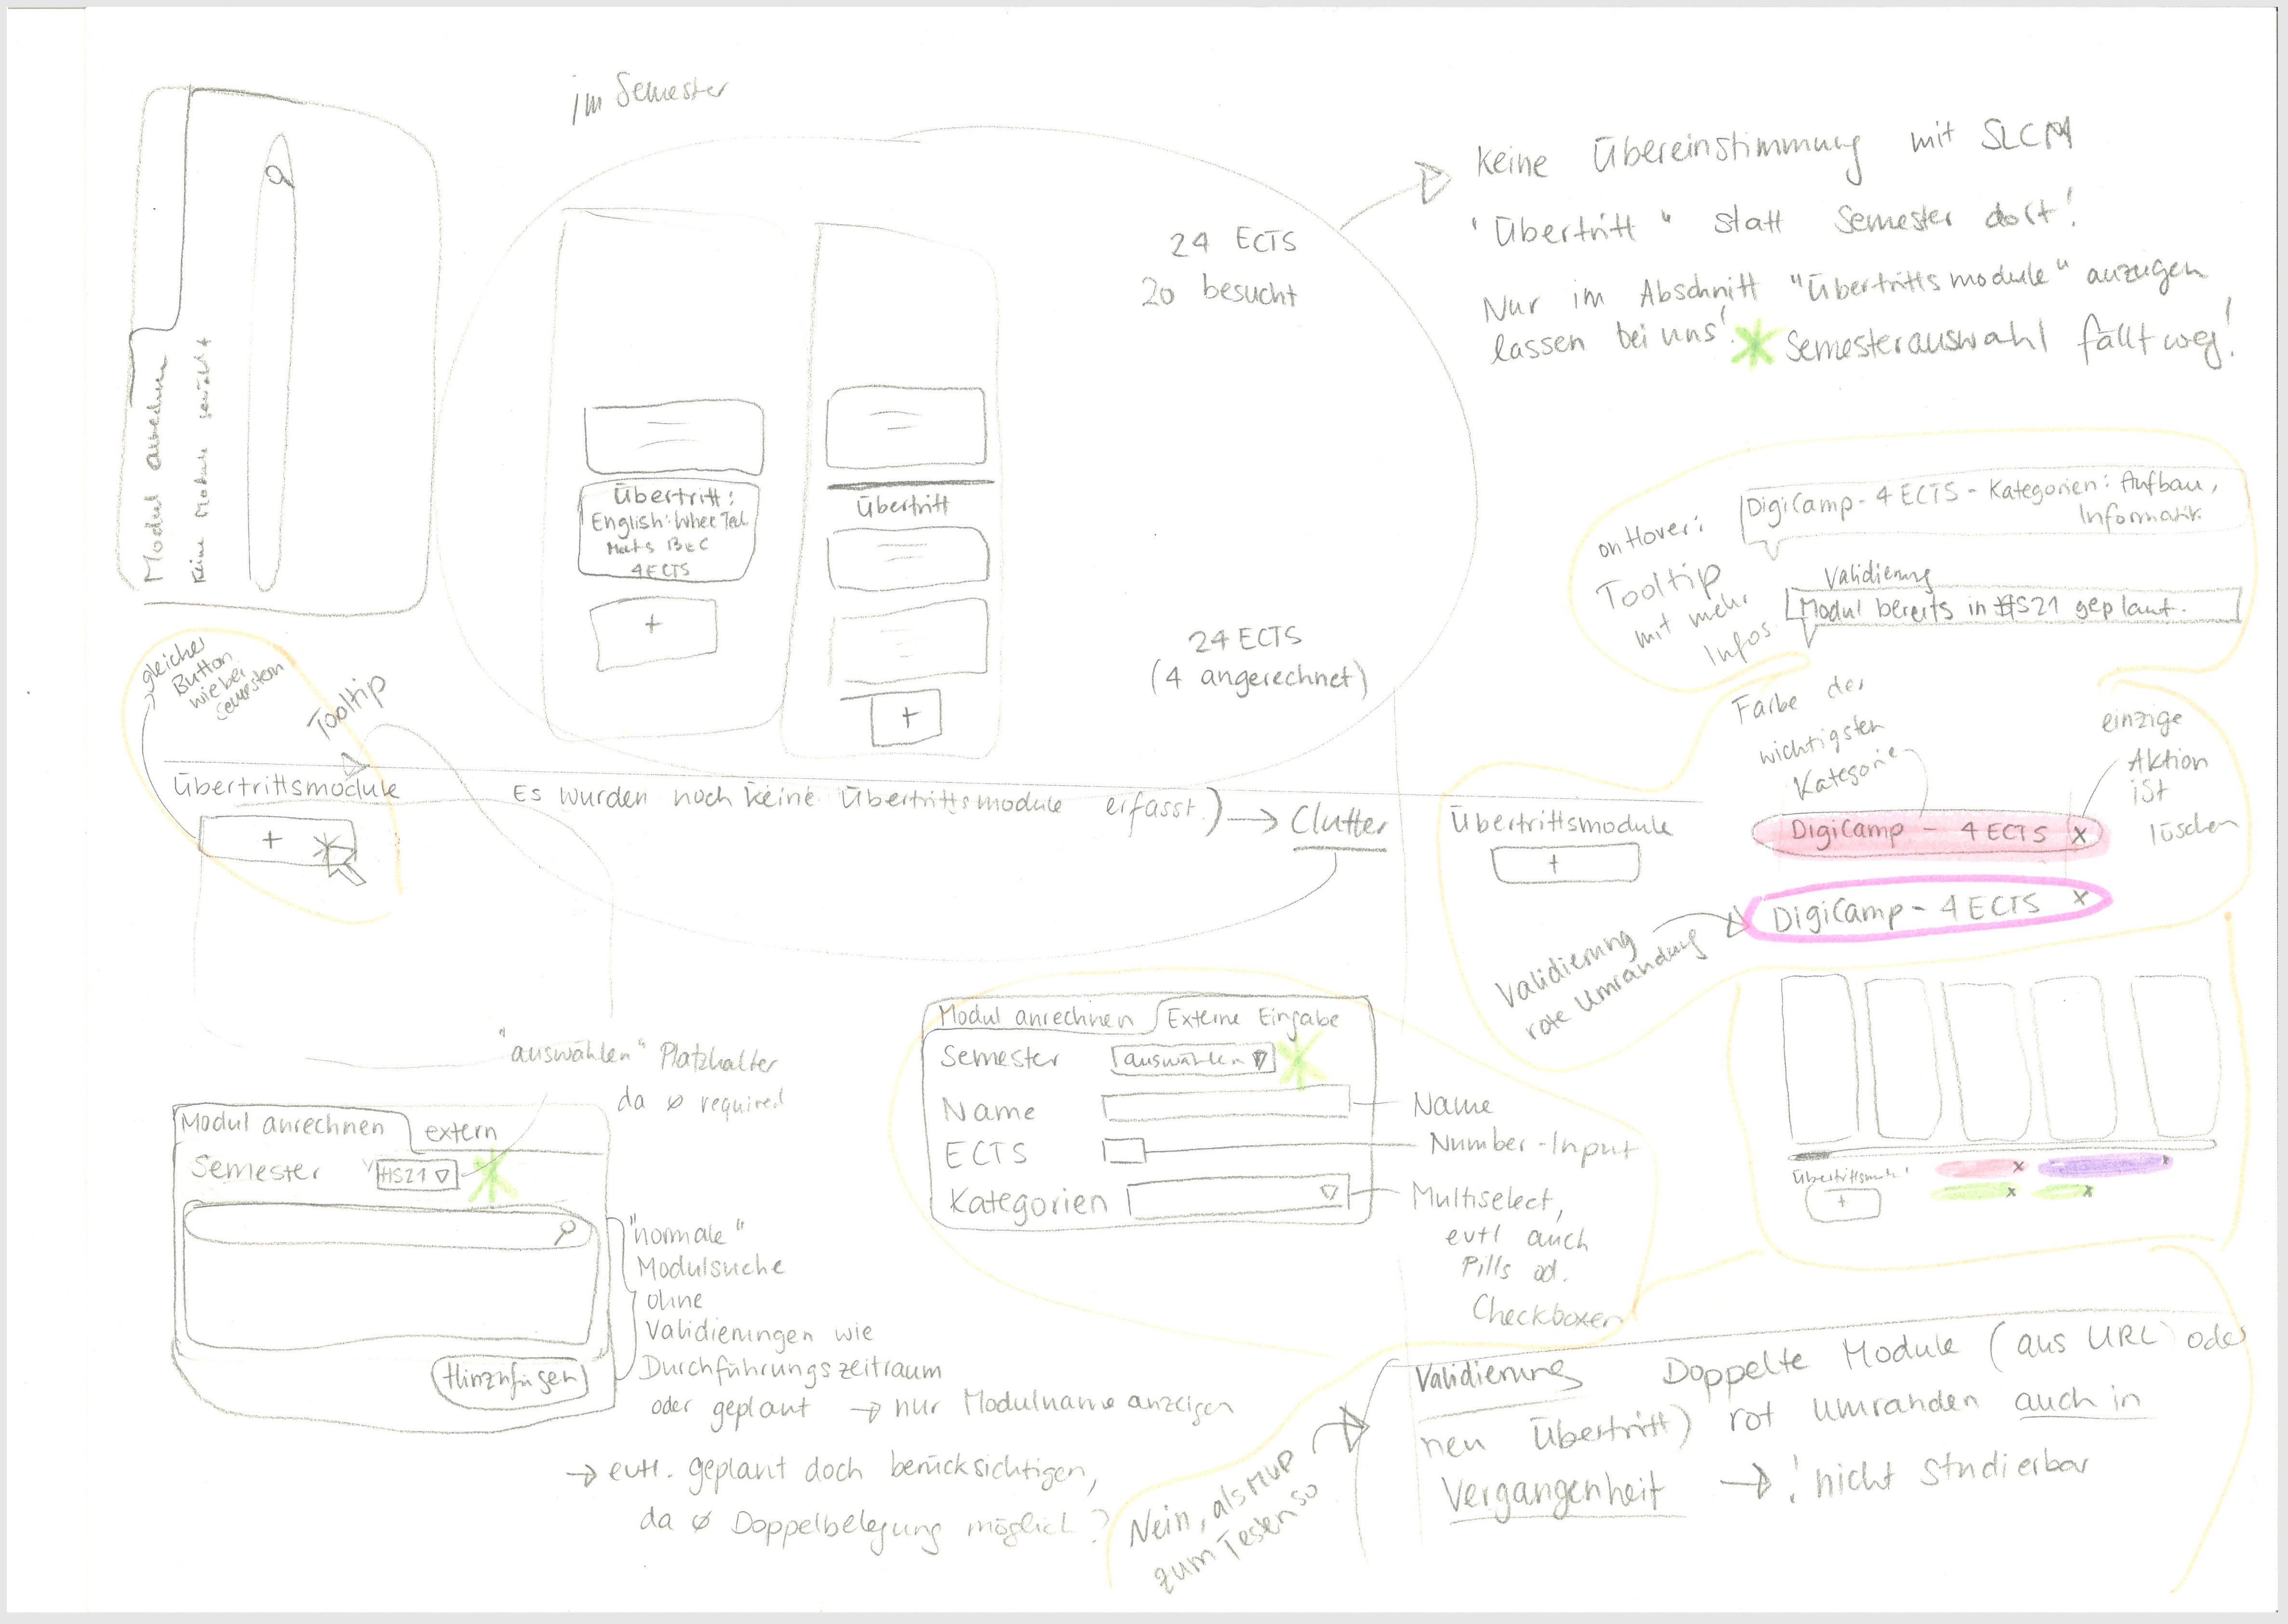 im Semester
Modul anrechnen
Keine Module
24 ECTS
20 besucht
Keine Übereinstimmung mit SLCM
"Übertritt" statt Semester dort!
Nur im Abschnitt "Übertrittsmodule" anzeigen
lassen bei uns! Semesterauswahl fällt weg!
Übertritt:
English:
4 ECTS
+
Übertritt
+
24 ECTS
(4 angerechnet)
onHover:
Tooltip
mit mehr
Infos
DigiCamp - 4 ECTS - Kategorien: Aufbau,
Informatik
Validierung
Modul bereits in HS21 geplant.
gleicher
Button
wie bei
Semestern
Tooltip
Übertrittsmodule
+
Es wurden noch keine Übertrittsmodule erfasst) → Clutter
Farbe der
wichtigsten
Kategorie
einzige
Aktion
ist
löschen
Übertrittsmodule
+
DigiCamp - 4 ECTS x
DigiCamp - 4 ECTS x
Validierung
rote Umrandung
"auswählen" Platzhalter
da ø required
Modul anrechnen
extern
Semester
HS21
Hinzufügen
"normale"
Modulsuche
ohne
Validierungen wie
Durchführungszeitraum
oder geplant → nur Modulname anzeigen
→ evtl. geplant doch berücksichtigen,
da ø Doppelbelegung möglich?
Modul anrechnen
Externe Eingabe
Semester
auswählen
Name
ECTS
Kategorien
Name
Number-Input
Multiselect,
evtl auch
Pills od.
Checkboxen
x
x
x
x
+
Nein, als MVP
zum Testen so
Validierung Doppelte Module (aus URL) oder
neu Übertritt) rot umranden auch in
Vergangenheit → ! nicht studierbar